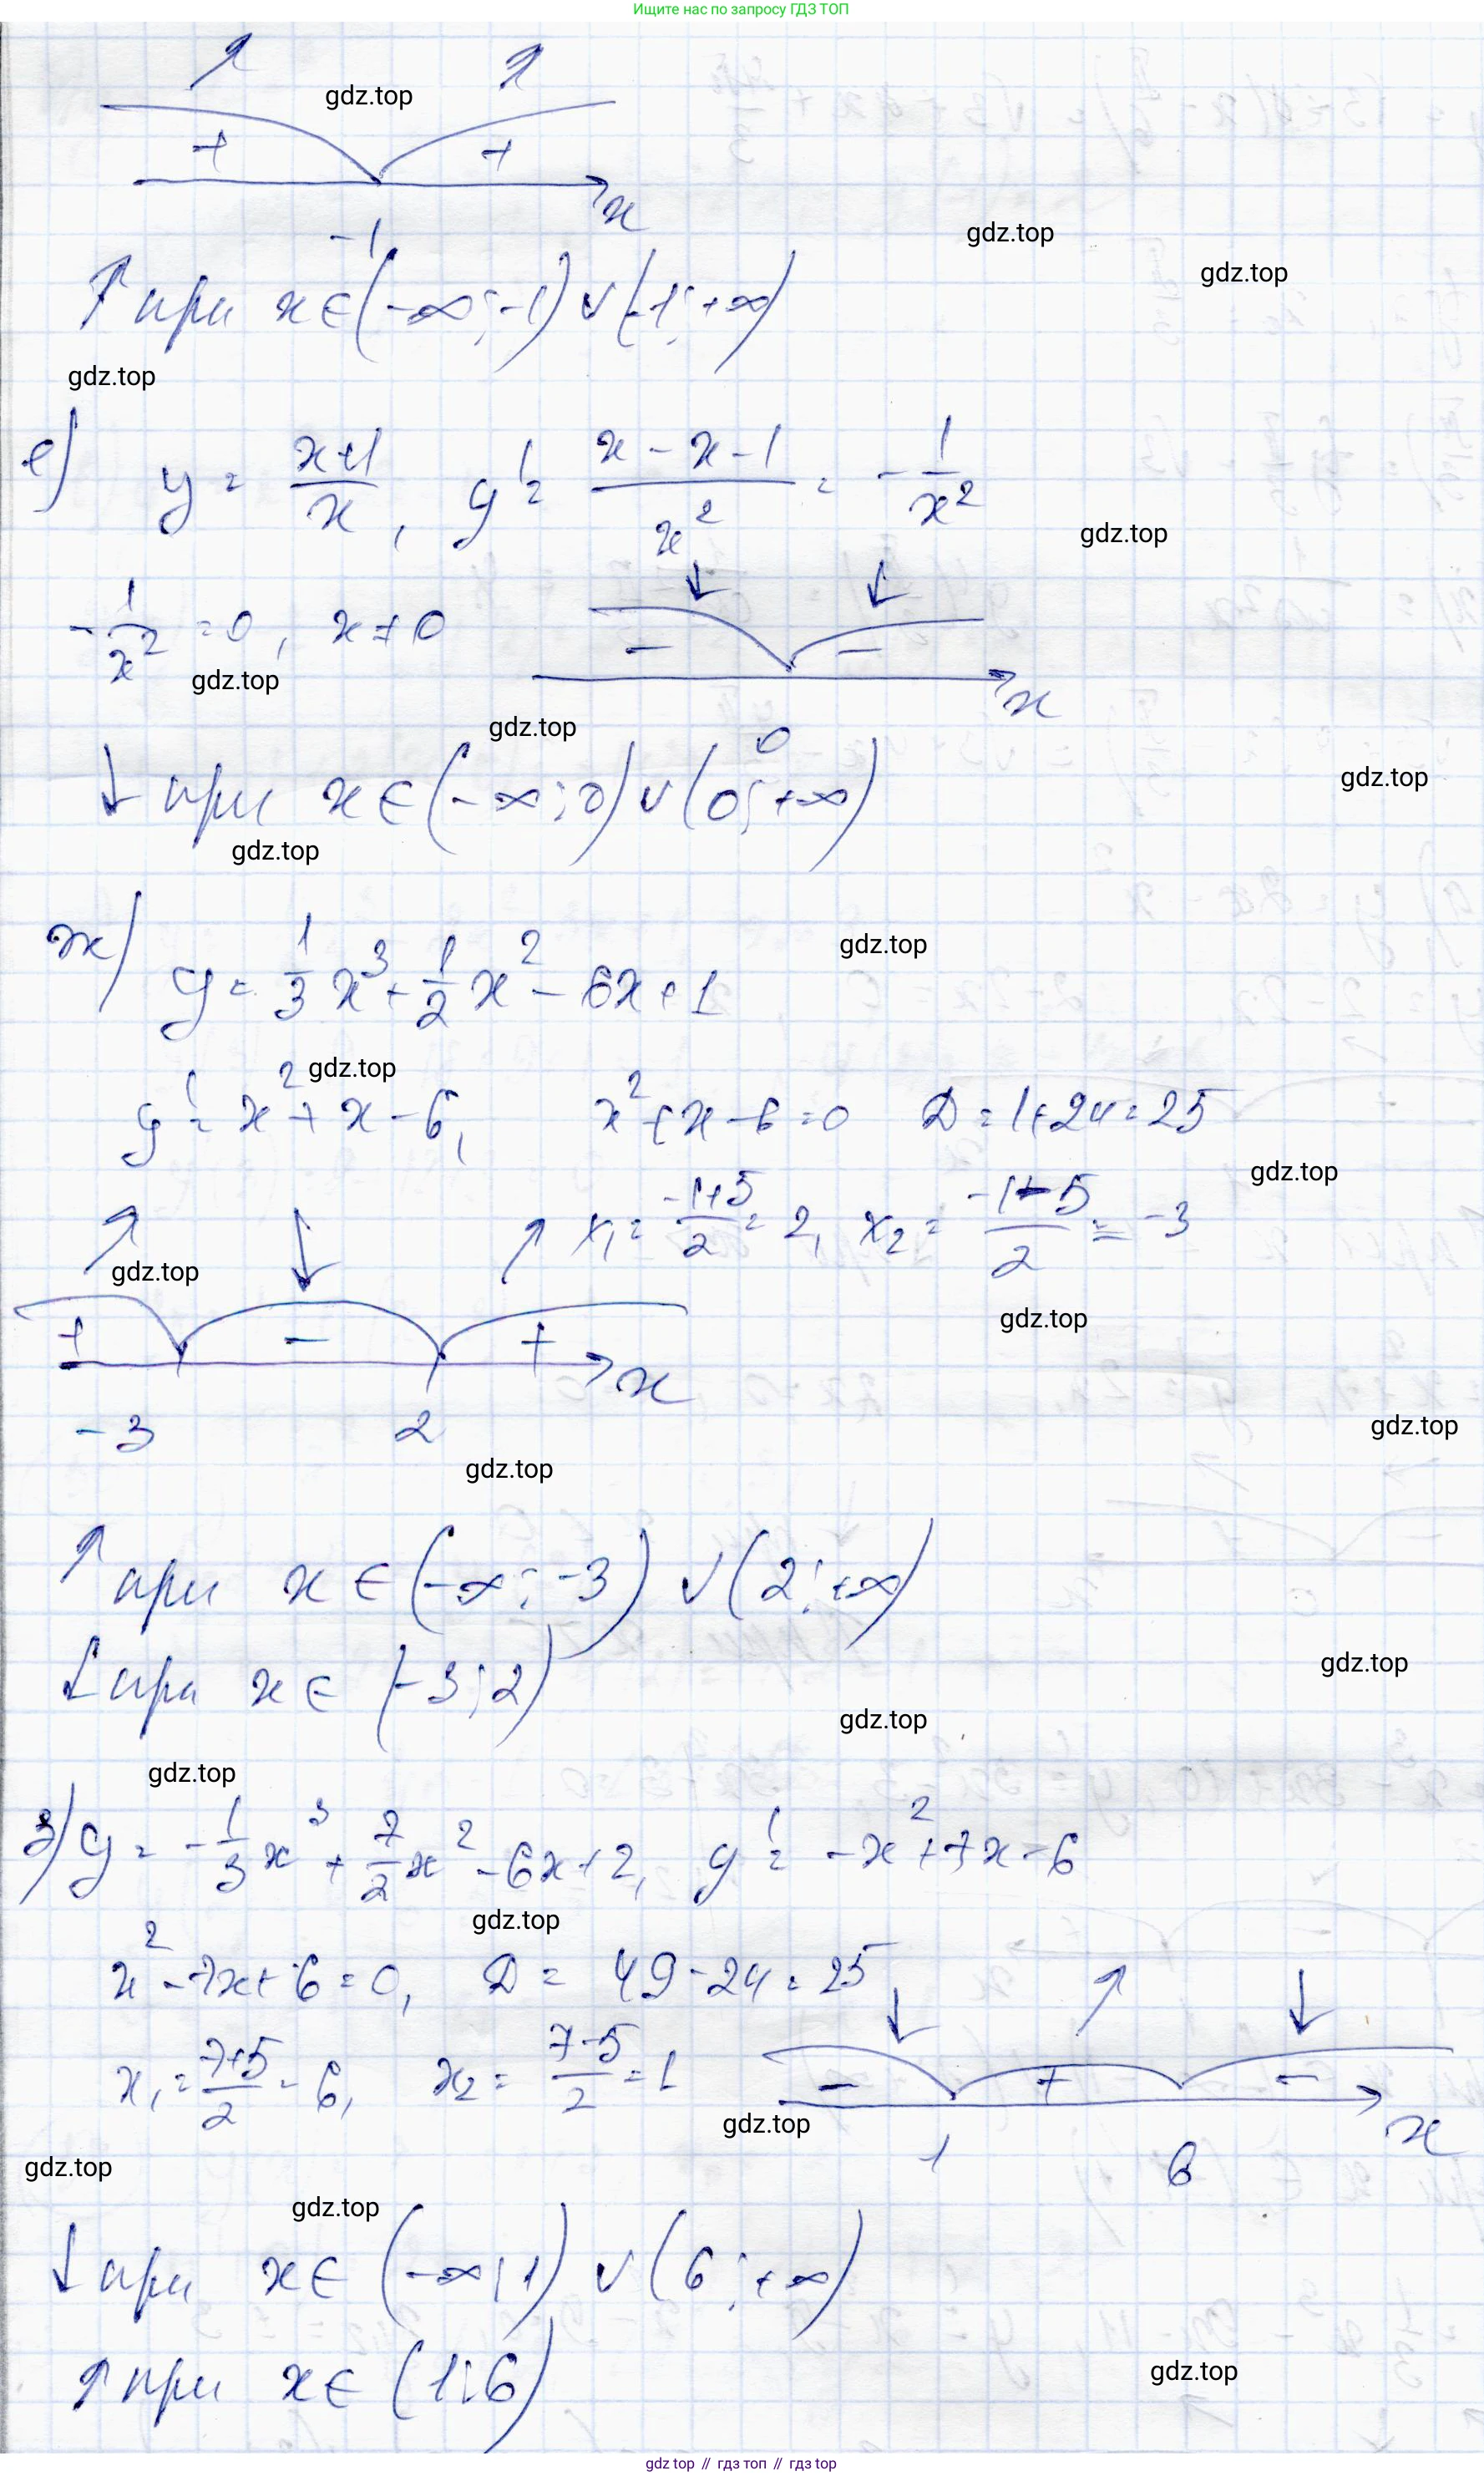 Ищите нас по запросу ГДЗ ТОП
↗ ↗
gdz.top
+ +
x
-1
gdz.top
gdz.top
↑ при x∈(-∞;-1)∪(-1;+∞)
gdz.top
е) y = (x+1)/x, y' = (x-x-1)/x² = -1/x²
gdz.top
↓ ↓
-1/x² = 0, x≠0
- -
x
gdz.top
gdz.top
0
gdz.top
↓ при x∈(-∞;0)∪(0;+∞)
gdz.top
ж) y = 1/3 x³ + 1/2 x² - 6x + 1
gdz.top
gdz.top
y' = x² + x - 6, x² + x - 6 = 0 D = 1+24 = 25
gdz.top
x₁ = (-1+5)/2 = 2, x₂ = (-1-5)/2 = -3
↗ ↓ ↗
gdz.top
gdz.top
+ - +
x
-3 2
gdz.top
gdz.top
↑ при x∈(-∞;-3)∪(2;+∞)
↓ при x∈(-3;2)
gdz.top
gdz.top
gdz.top
з) y = -1/3 x³ + 7/2 x² - 6x + 2, y' = -x² + 7x - 6
gdz.top
x² - 7x + 6 = 0, D = 49 - 24 = 25
↓ ↗ ↓
x₁ = (7+5)/2 = 6, x₂ = (7-5)/2 = 1
- + -
gdz.top
x
1 6
gdz.top
gdz.top
↓ при x∈(-∞;1)∪(6;+∞)
↑ при x∈(1;6)
gdz.top
gdz top // гдз топ // гдз top